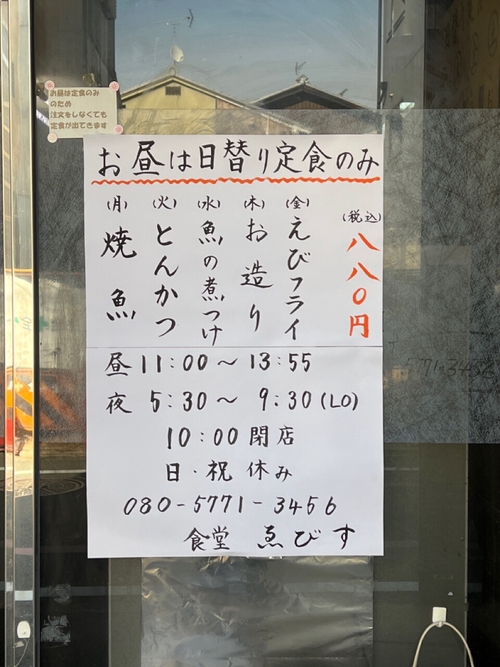 お昼は定食のみ
のため
注文をしなくても
定食が出てきます
お昼は日替り定食のみ
(月) 焼魚
(火) とんかつ
(水) 魚の煮つけ
(木) お造り
(金) えびフライ
(税込) 八八〇円
昼 11:00〜13:55
夜 5:30〜 9:30(LO)
10:00 閉店
日・祝 休み
080-5771-3456
食堂 ゑびす